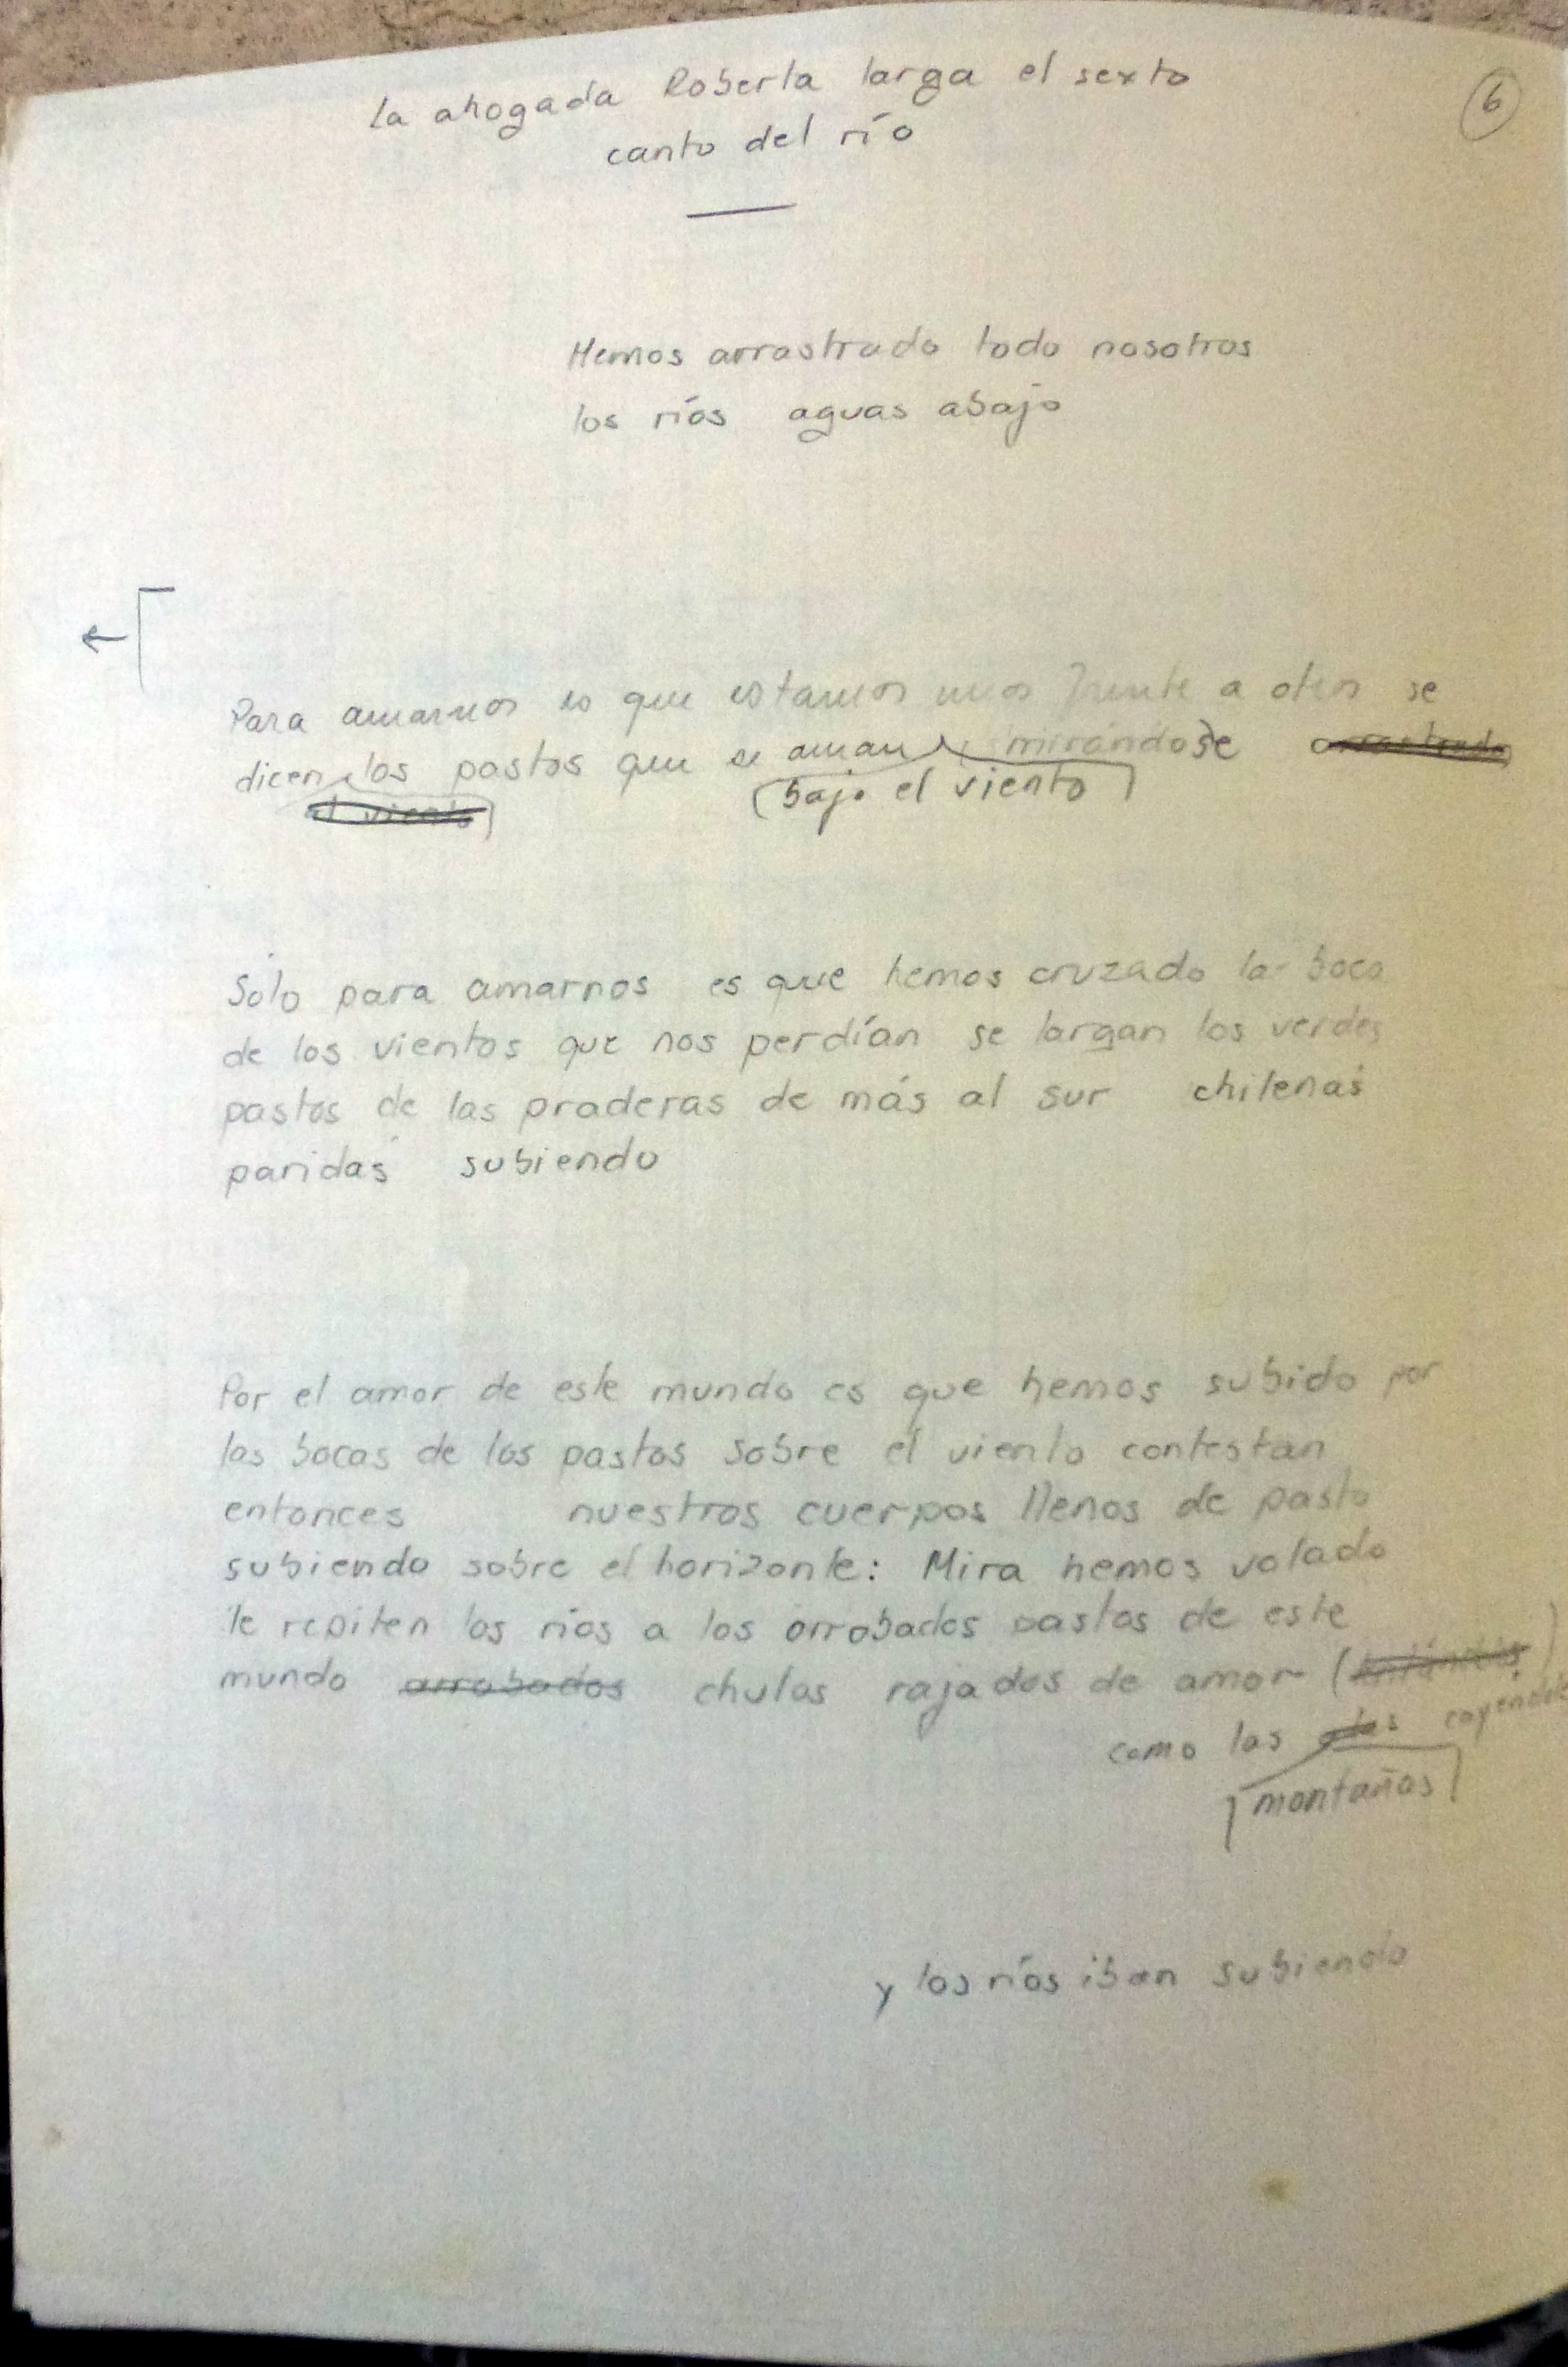 la ahogada Roberta larga el sexto
canto del río
6
Hemos arrastrado todo nosotros
los ríos aguas abajo
Para amarnos es que estamos unos frente a otros se
dicen los pastos que se aman mirándose arrastrado
el viento
bajo el viento
Sólo para amarnos es que hemos cruzado la boca
de los vientos que nos perdían se largan los verdes
pastos de las praderas de más al sur chilenas
paridas subiendo
Por el amor de este mundo es que hemos subido por
las bocas de los pastos sobre el viento contestan
entonces nuestros cuerpos llenos de pasto
subiendo sobre el horizonte: Mira hemos volado
le repiten los ríos a los arrobados pastos de este
mundo arrobados chulos rajados de amor (
como las olas cayendo
montañas
y los ríos iban subiendo